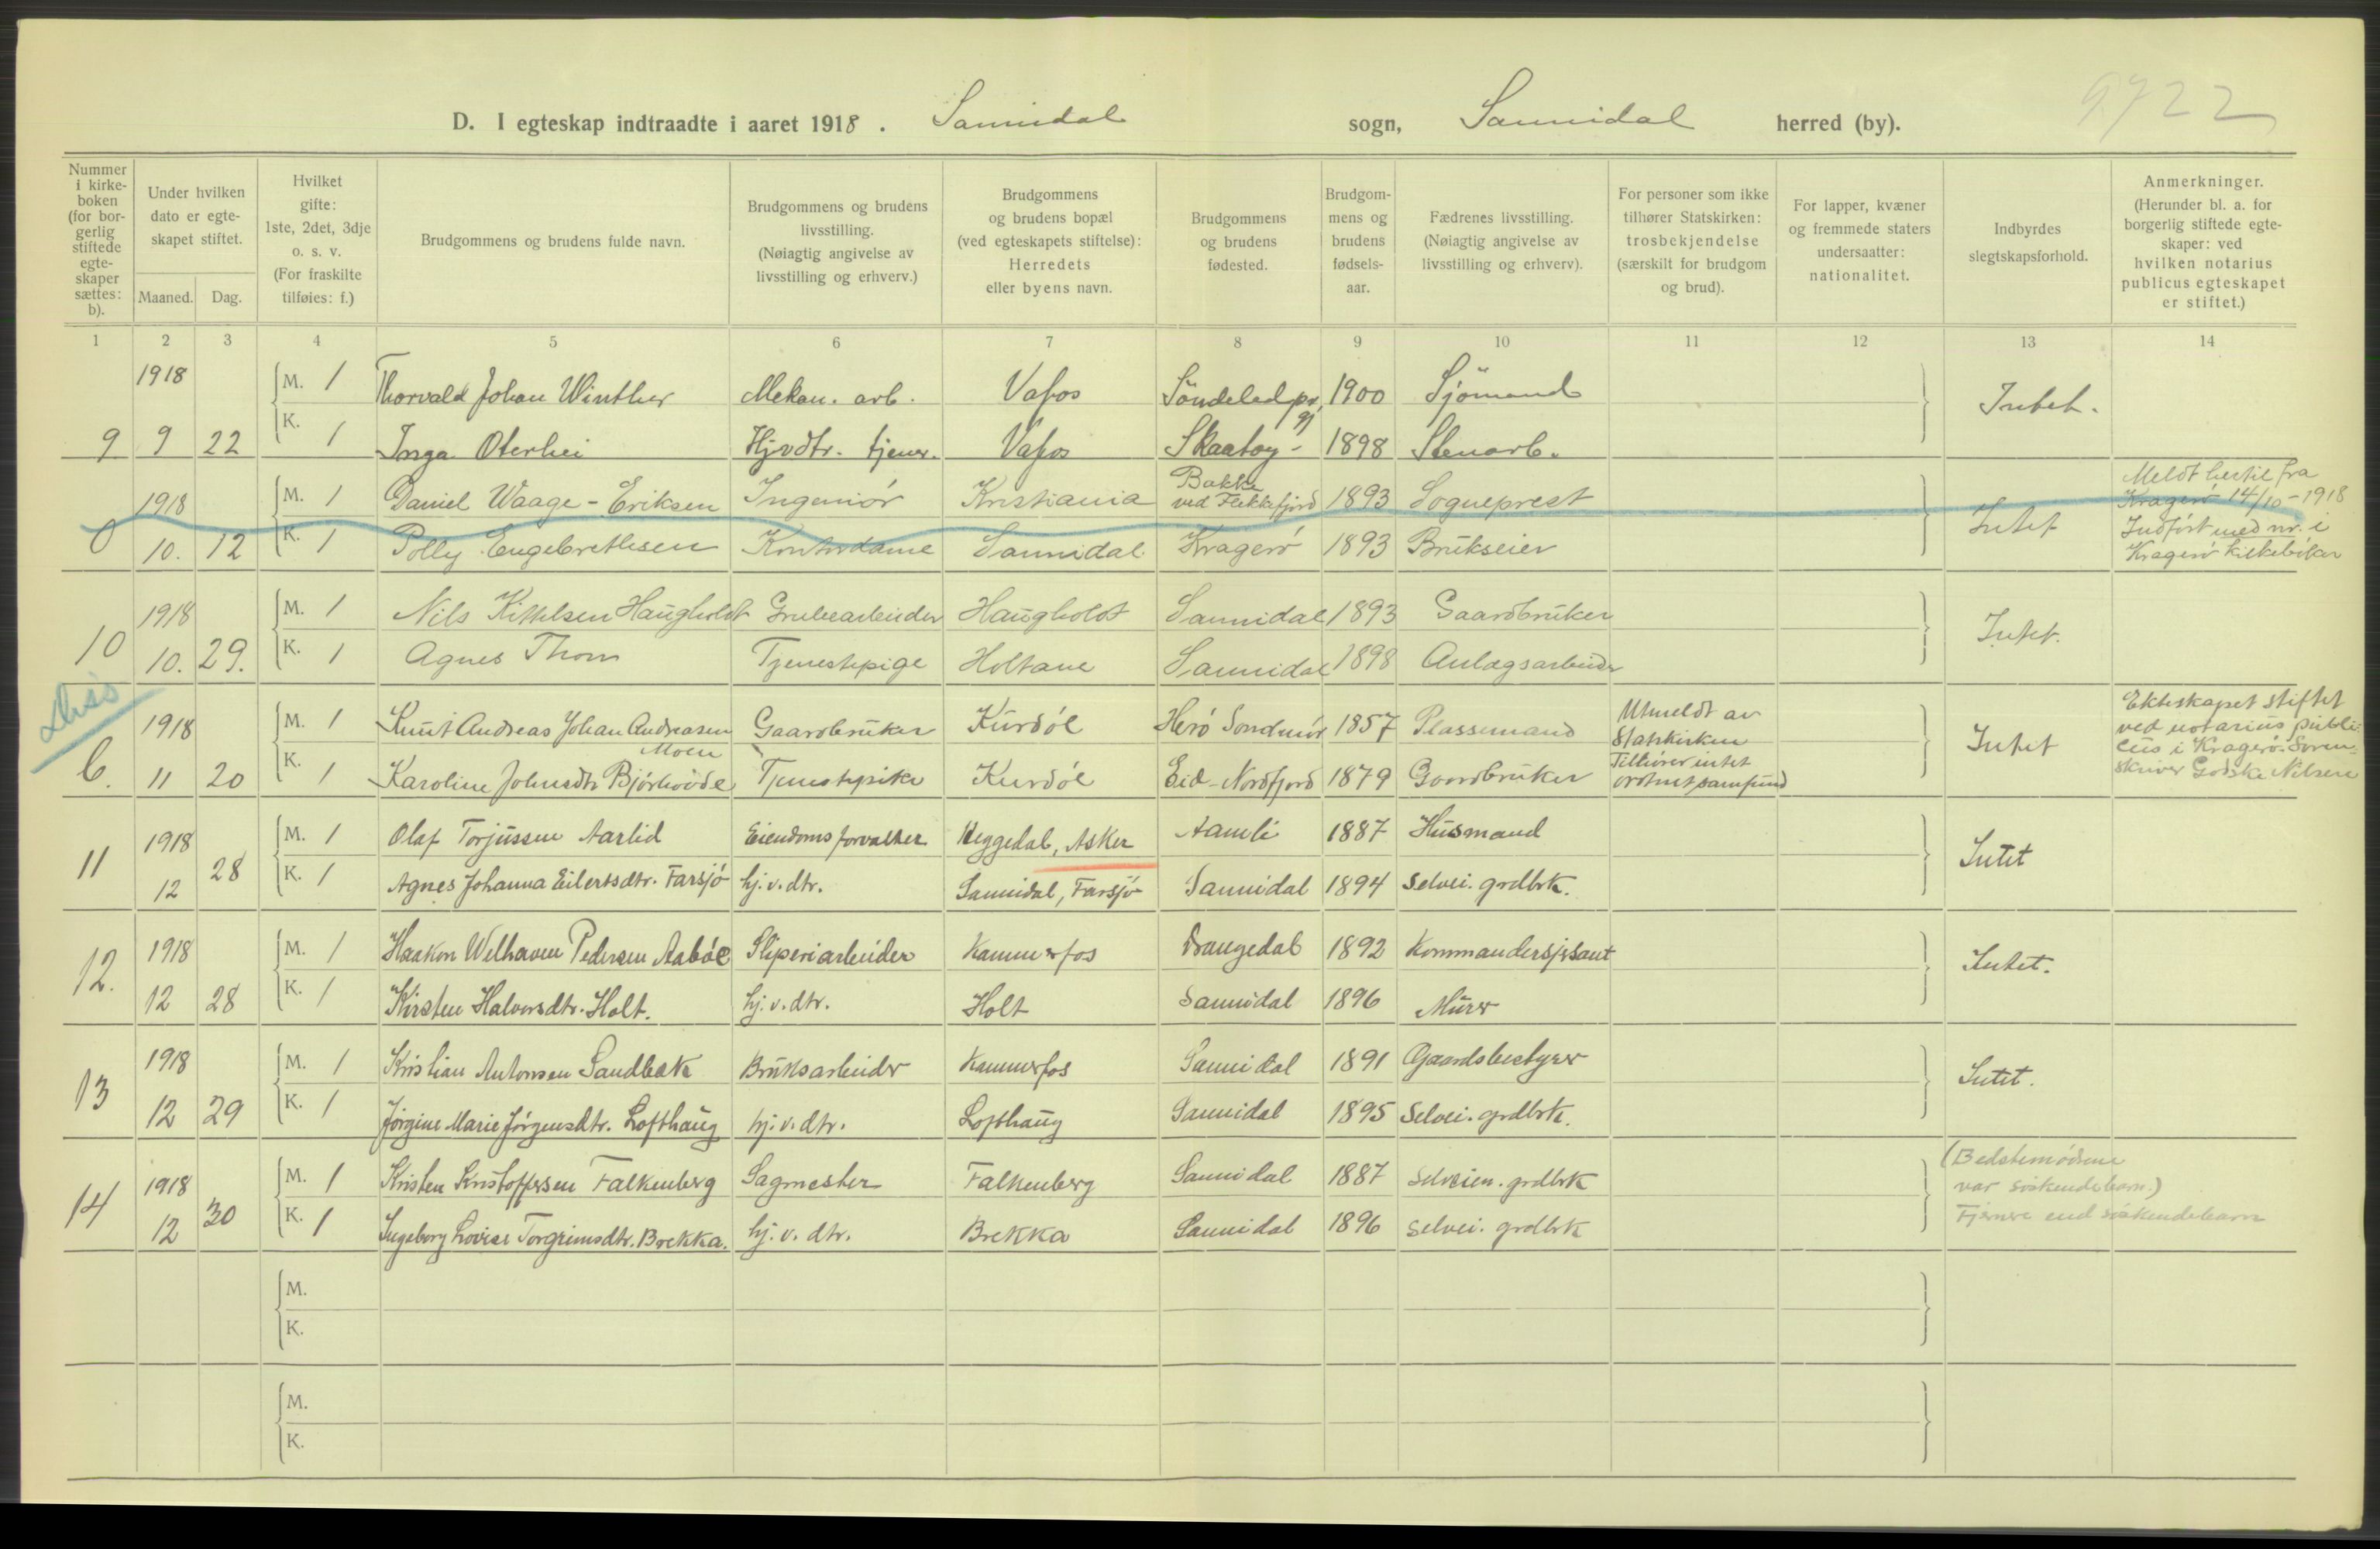 9722
D. I egteskap indtraadte i aaret 1918. Sannidal sogn, Sannidal herred (by).
Nummer i kirkeboken (for borgerlig stiftede egteskaper sættes: b).
Under hvilken dato er egteskapet stiftet.
Maaned. Dag.
Hvilket gifte: 1ste, 2det, 3dje o. s. v. (For fraskilte tilføies: f.)
Brudgommens og brudens fulde navn.
Brudgommens og brudens livsstilling. (Nøiagtig angivelse av livsstilling og erhverv.)
Brudgommens og brudens bopæl (ved egteskapets stiftelse): Herredets eller byens navn.
Brudgommens og brudens fødested.
Brudgommens og brudens fødselsaar.
Fædrenes livsstilling. (Nøiagtig angivelse av livsstilling og erhverv).
For personer som ikke tilhører Statskirken: trosbekjendelse (særskilt for brudgom og brud).
For lapper, kvæner og fremmede staters undersaatter: nationalitet.
Indbyrdes slegtskapsforhold.
Anmerkninger. (Herunder bl. a. for borgerlig stiftede egteskaper: ved hvilken notarius publicus egteskapet er stiftet.)
1 2 3 4 5 6 7 8 9 10 11 12 13 14
1918 M. 1 Thorvald Johan Winther Mekan. arb. Vafos Söndeled 1900 Sjömand Intet.
9 9 22 K. 1 Inga Oterhei Hjvdtr. tjener. Vafos Skaatøy 1898 Stenarb.
1918 M. 1 Daniel Waage-Eriksen Ingeniör Kristiania Bakke ved Flekkefjord 1893 Sogneprest Intet Meldt hertil fra Kragerö 14/10-1918
0 10. 12 K. 1 Polly Engebrethsen Kontordame Sannidal Kragerö 1893 Brukseier Indfört med nr. i Kragerö kirkebøker
1918 M. 1 Nils Kittelsen Haugholdt Grubearbeider Haugholdt Sannidal 1893 Gaardbruker Intet.
10 10. 29. K. 1 Agnes Thom Tjenestepige Holtane Sannidal 1898 Anlægsarbeider
Diss
1918 M. 1 Knut Andreas Johan Andreasen Moen Gaardbruker Kurdöl Herö Sondmör 1857 Plassemand Utmeldt av Statskirken Intet Ekteskapet stiftet ved notarius publi-
b. 11 20 K. 1 Karoline Johnsdtr Bjórhovde Tjenestepike Kurdöl Eid-Nordfjord 1879 Gaardbruker Tilhører intet ordnet samfund cus i Kragerö. Soren-
skriver Godske Nilsen
1918 M. 1 Olaf Torjussen Aarlid Eiendomsforvalter Heggedal, Asker Aamli 1887 Husmand Intet
11 12 28 K. 1 Agnes Johanna Eilertsdtr. Farsjö hj.v.dtr. Sannidal, Farsjö Sannidal 1894 Selvei. grdbrk.
1918 M. 1 Haakon Welhaven Pedersen Aaböe Sliperiarbeider Kammerfos Drangedal 1892 Kommandersjersant Intet.
12. 12 28 K. 1 Kirsten Halvorsdtr. Holt. hj.v.dtr. Holt Sannidal 1896 Murer
1918 M. 1 Kristian Antonsen Sandbæk Bruksarbeider Kammerfos Sannidal 1891 Gaardsbestyrer Intet.
13 12 29 K. 1 Jørgine Marie Jørgensdtr. Lofthaug hj.v.dtr. Lofthaug Sannidal 1895 Selvei. grdbrk.
1918 M. 1 Kristen Kristoffersen Falkenberg Sagmester Falkenberg Sannidal 1887 Selveien. grdbrk (Bedstemødrene var söskendebarn.)
14 12 30 K. 1 Ingeborg Lovise Torgrimsdtr. Brekka. hj.v.dtr. Brekka Sannidal 1896 Selvei. grdbrk Fjernere end söskendebarn
M.
K.
M.
K.